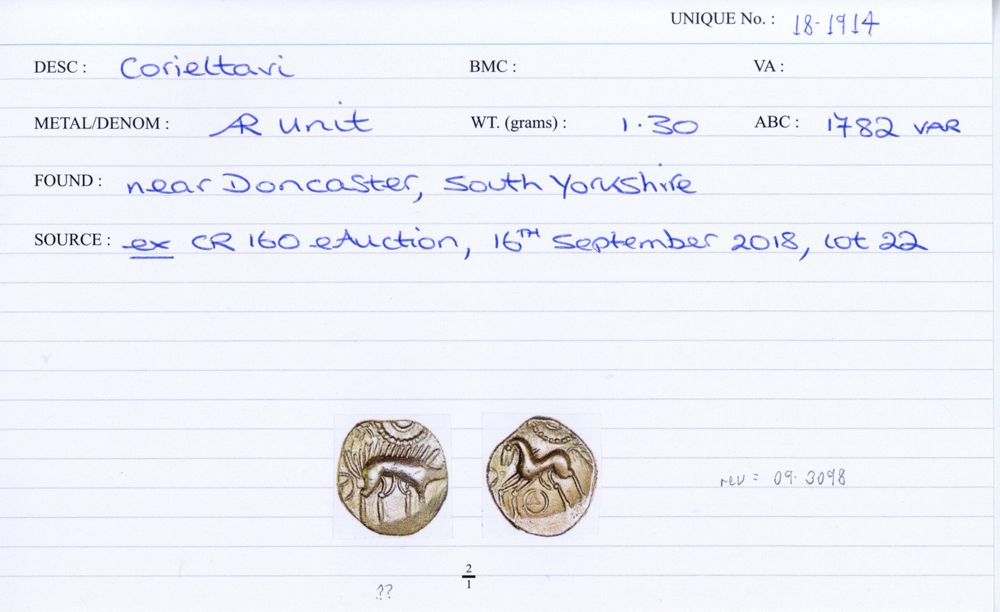 UNIQUE No. : 18-1914
DESC : Corieltavi BMC : VA :
METAL/DENOM : AR unit WT. (grams) : 1.30 ABC : 1782 VAR
FOUND : near Doncaster, South Yorkshire
SOURCE : ex CR 160 eAuction, 16TH September 2018, lot 22
rev = 09.3098
2
1
??